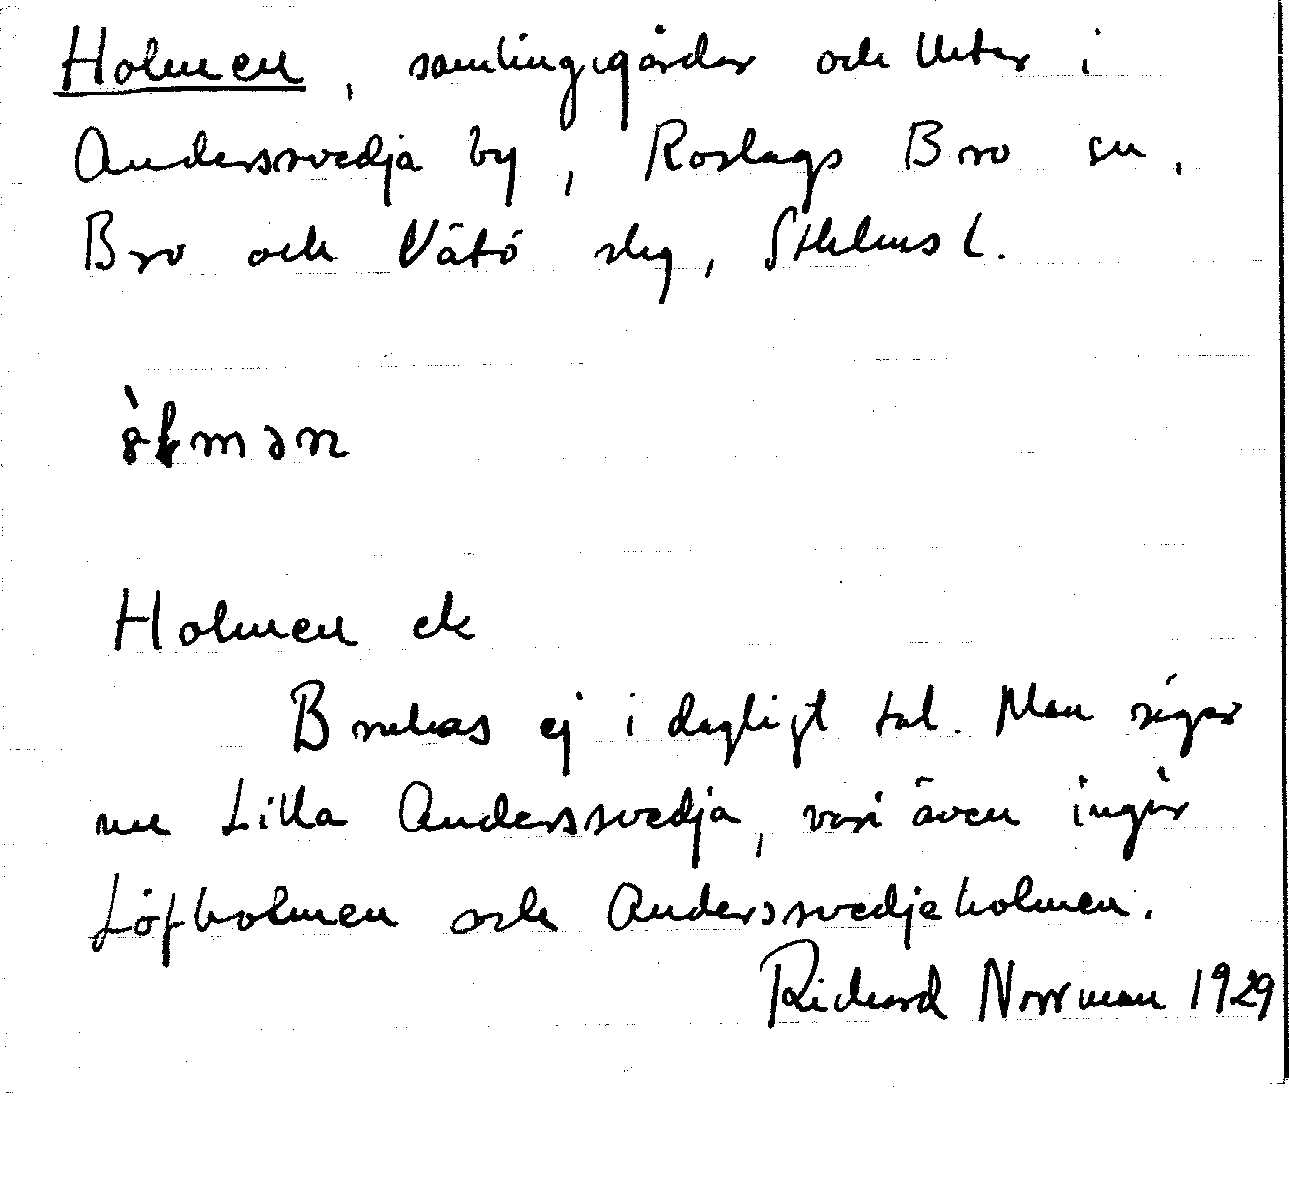 Holmen, samlingsgårdar och Uter i
Anderssvedja by, Roslags Bro sn,
Bro och Vätö slg, Sthlms l.
Holmen ek
Brukas ej i dagligt tal. Man säger
nu Lilla Anderssvedja, vari även ingår
Löfholmen och Anderssvedjeholmen.
Richard Norrman 1929